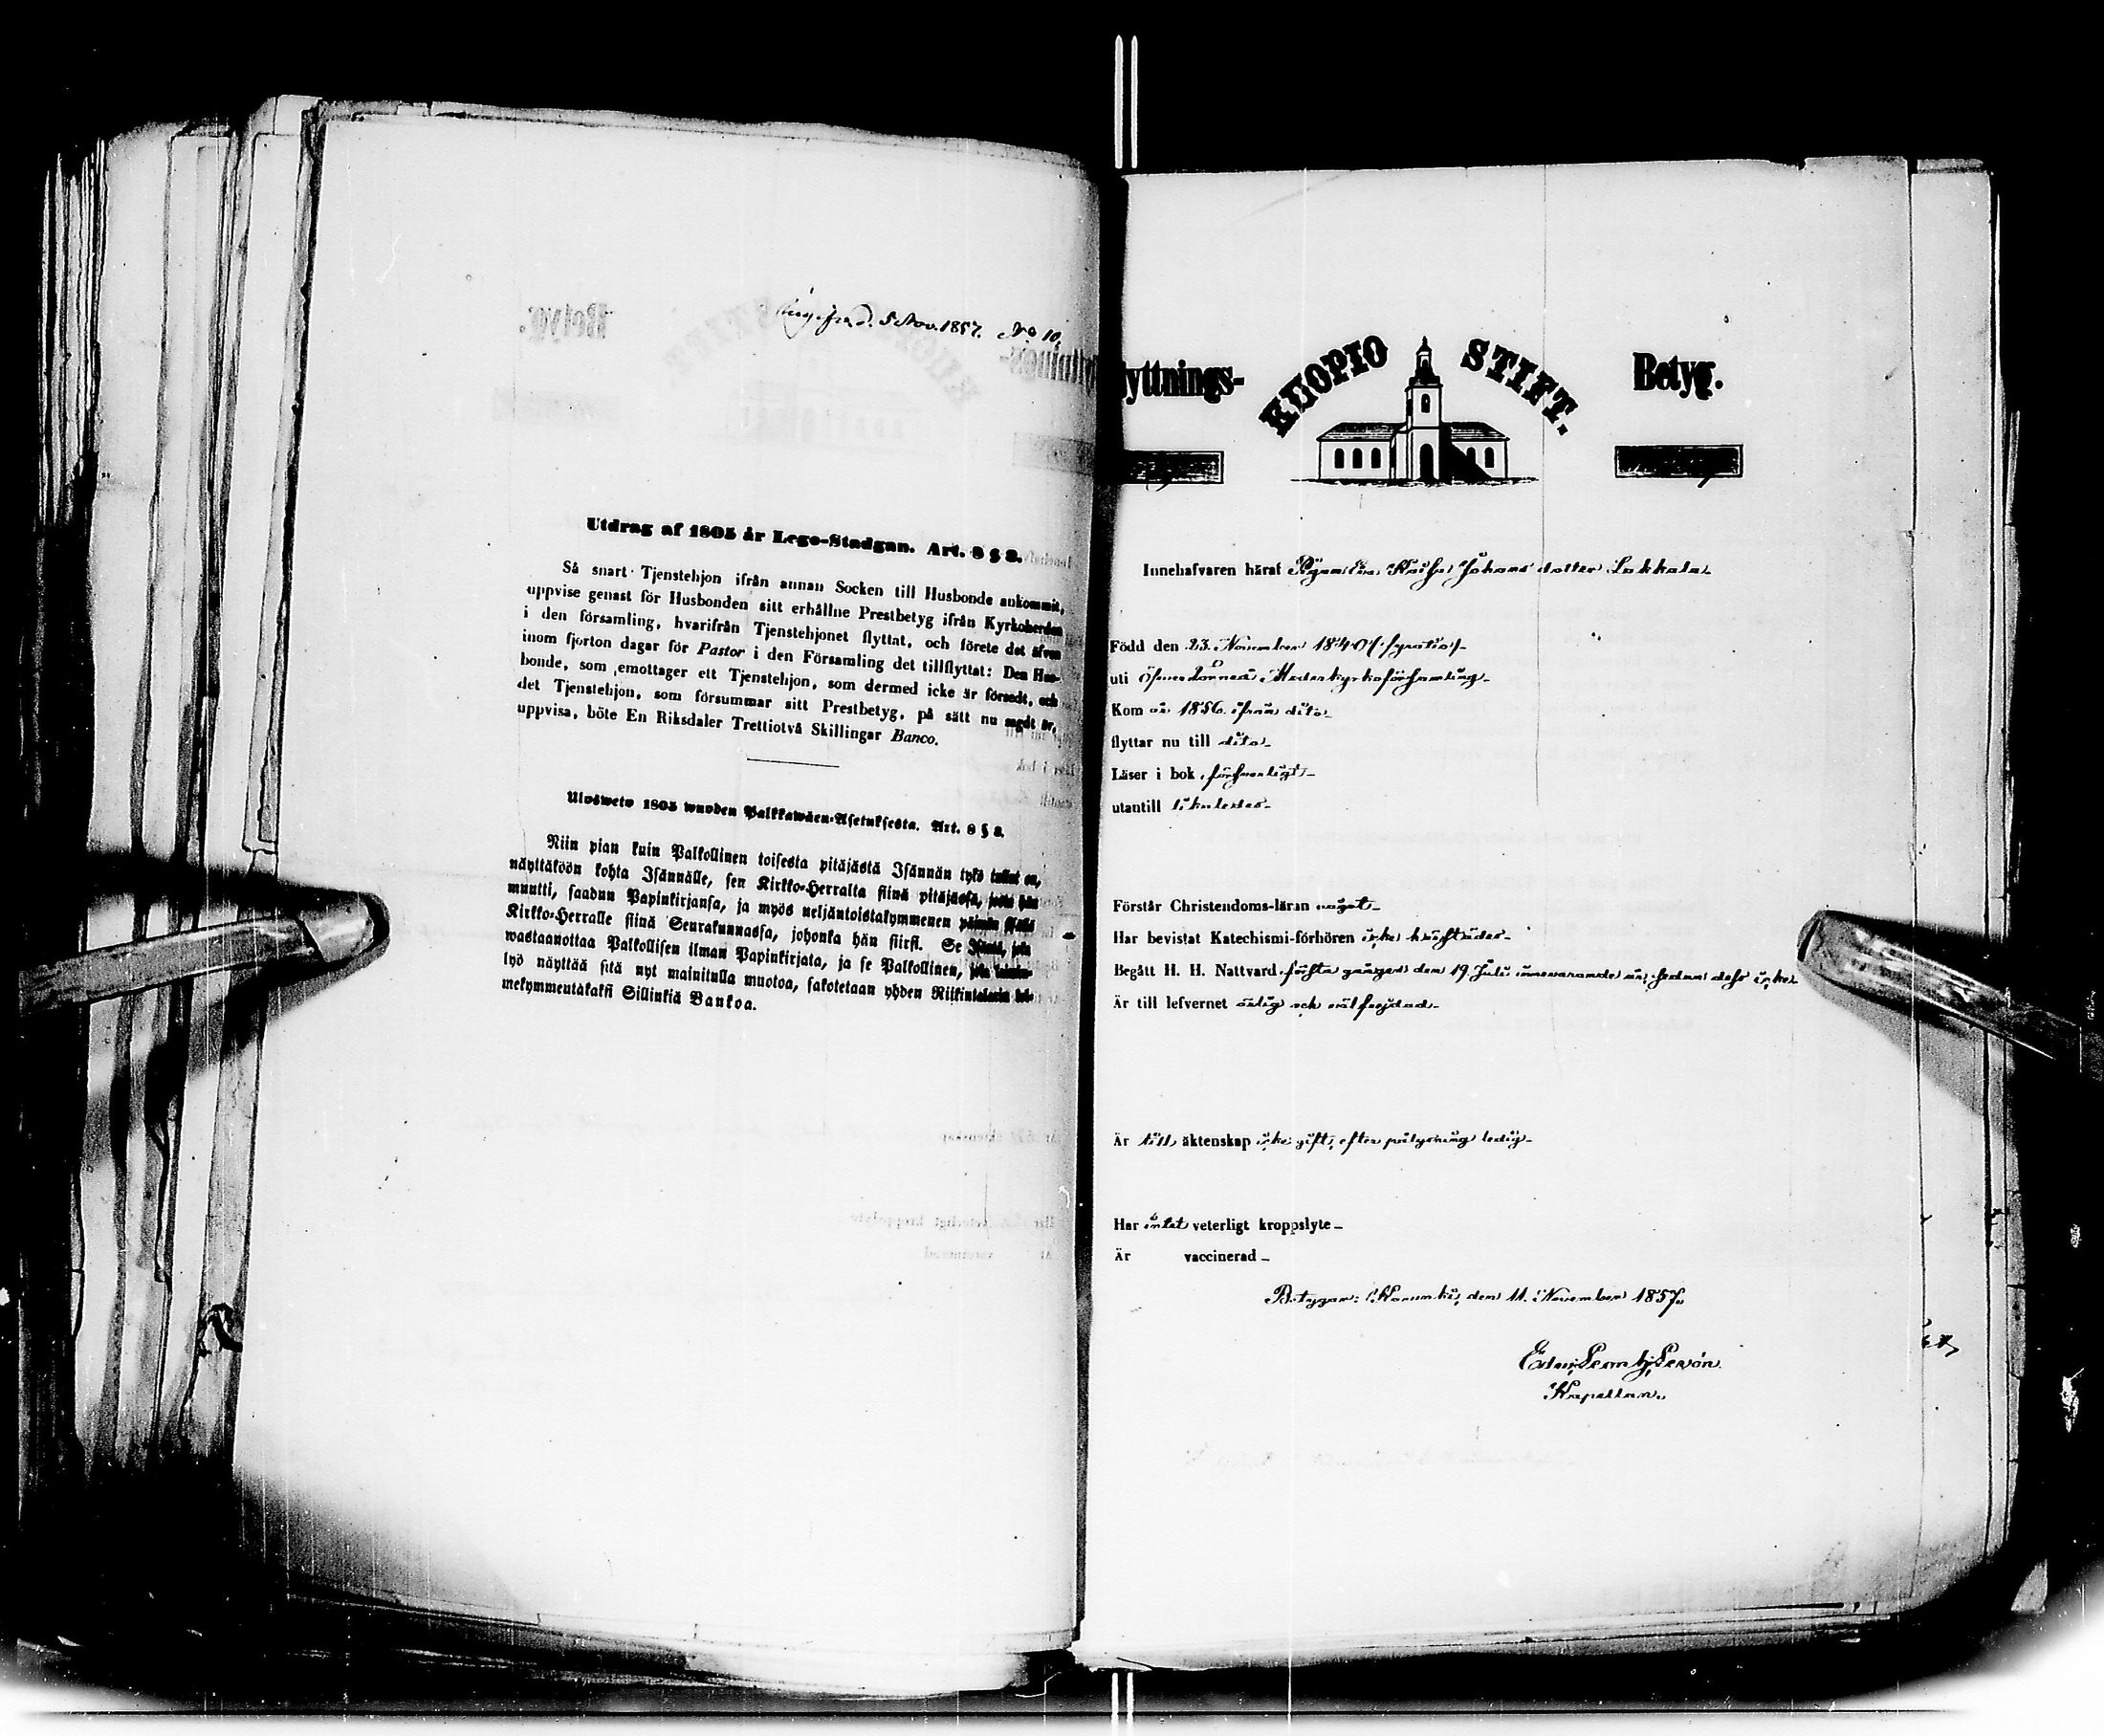 d. 5 Nov. 1857. No 10.
Utdrag af 1805 år Lego-Stadgan. Art. 8 § 8.
Så snart Tjenstehjon ifrån annan Socken till Husbonde ankommit,
uppvise genast för Husbonden sitt erhållne Prestbetyg ifrån Kyrkoherden
i den församling, hvarifrån Tjenstehjonet flyttat, och förete det äfven
inom fjorton dagar för Pastor i den Församling det tillflyttat: Den Hus-
bonde, som emottager ett Tjenstehjon, som dermed icke är försedt, och
det Tjenstehjon, som försummar sitt Prestbetyg, på sätt nu sagdt är,
uppvisa, böte En Riksdaler Trettiotvå Skillingar Banco.
Ulosweto 1805 wuoden Palkkawäen-Asetuksesta. Art. 8 § 8.
Niin pian kuin Palkollinen toisesta pitäjästä Isännän tykö tullut on,
näyttäköön kohta Isännälle, sen Kirkko-Herralta siinä pitäjässä, josta hän
muutti, saadun Papinkirjansa, ja myös neljäntoistakymmenen päiwän sisällä
Kirkko-Herralle siinä Seurakunnassa, johonka hän siirsi. Se Isäntä, joka
wastaanottaa Palkollisen ilman Papinkirjata, ja se Palkollinen, joka laimin-
lyö näyttää sitä nyt mainitulla muotoa, sakotetaan yhden Riikintalarin kol-
mekymmentäkaksi Sillinkiä Bankoa.
yttnings- KUOPIO STIFT. Betyg.
Innehafvaren häraf Pigan Eva Kaisa Johans dotter Lakkala
Född den 23. November 1840 (fyratio)
uti Öfvertorneå Moderkyrkoförsamling
Kom år 1856 ifrån dito
flyttar nu till dito
Läser i bok försvarligt
utantill likaledes
Förstår Christendoms-läran något
Har bevistat Katechismi-förhören icke härstädes
Begått H. H. Nattvard första gången den 19 Juli innevarande år, sedan dess icke
Är till lefvernet ärlig och välfrejdad
Är till äktenskap icke gift, efter pålysning ledig
Har intet veterligt kroppslyte
Är vaccinerad
Betygar: Karunki, den 11. November 1857.
Kapellan.